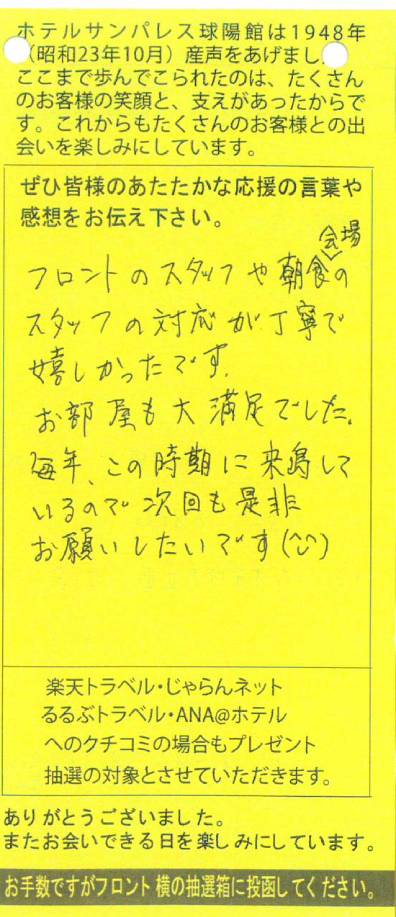 ホテルサンパレス球陽館は1948年
(昭和23年10月)産声をあげまし
ここまで歩んでこられたのは、たくさん
のお客様の笑顔と、支えがあったからで
す。これからもたくさんのお客様との出
会いを楽しみにしています。
ぜひ皆様のあたたかな応援の言葉や
感想をお伝え下さい。
フロントのスタッフや朝食会場の
スタッフの対応が丁寧で
嬉しかったです。
お部屋も大満足でした。
毎年、この時期に来島して
いるので次回も是非
お願いしたいです(^^)
楽天トラベル・じゃらんネット
るるぶトラベル・ANA@ホテル
へのクチコミの場合もプレゼント
抽選の対象とさせていただきます。
ありがとうございました。
またお会いできる日を楽しみにしています。
お手数ですがフロント横の抽選箱に投函してください。